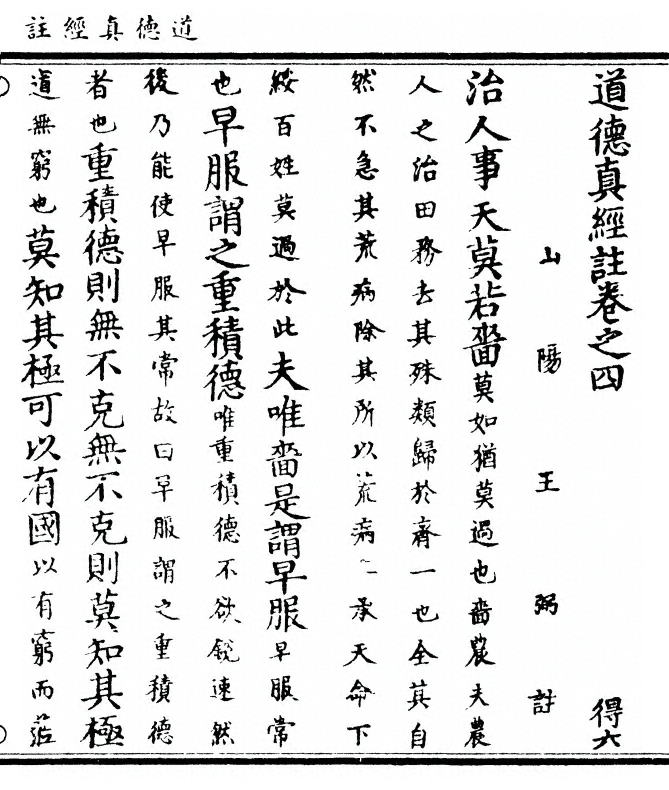 道德真經註
道德真經註卷之四 得六
山陽王弼註
治人事天莫若嗇莫如猶莫過也嗇農夫農
人之治田務去其殊類歸於齊一也全其自
然不急其荒病除其所以荒病〻承天命下
綏百姓莫過於此夫唯嗇是謂早服早服常
也早服謂之重積德唯重積德不欲銳速然
後乃能使早服其常故曰早服謂之重積德
者也重積德則無不克無不克則莫知其極
道無窮也莫知其極可以有國以有窮而莅